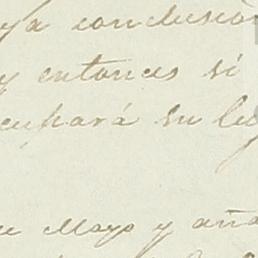 ya conclusión
y entonces si
cupará su lu
de Mayo y aña